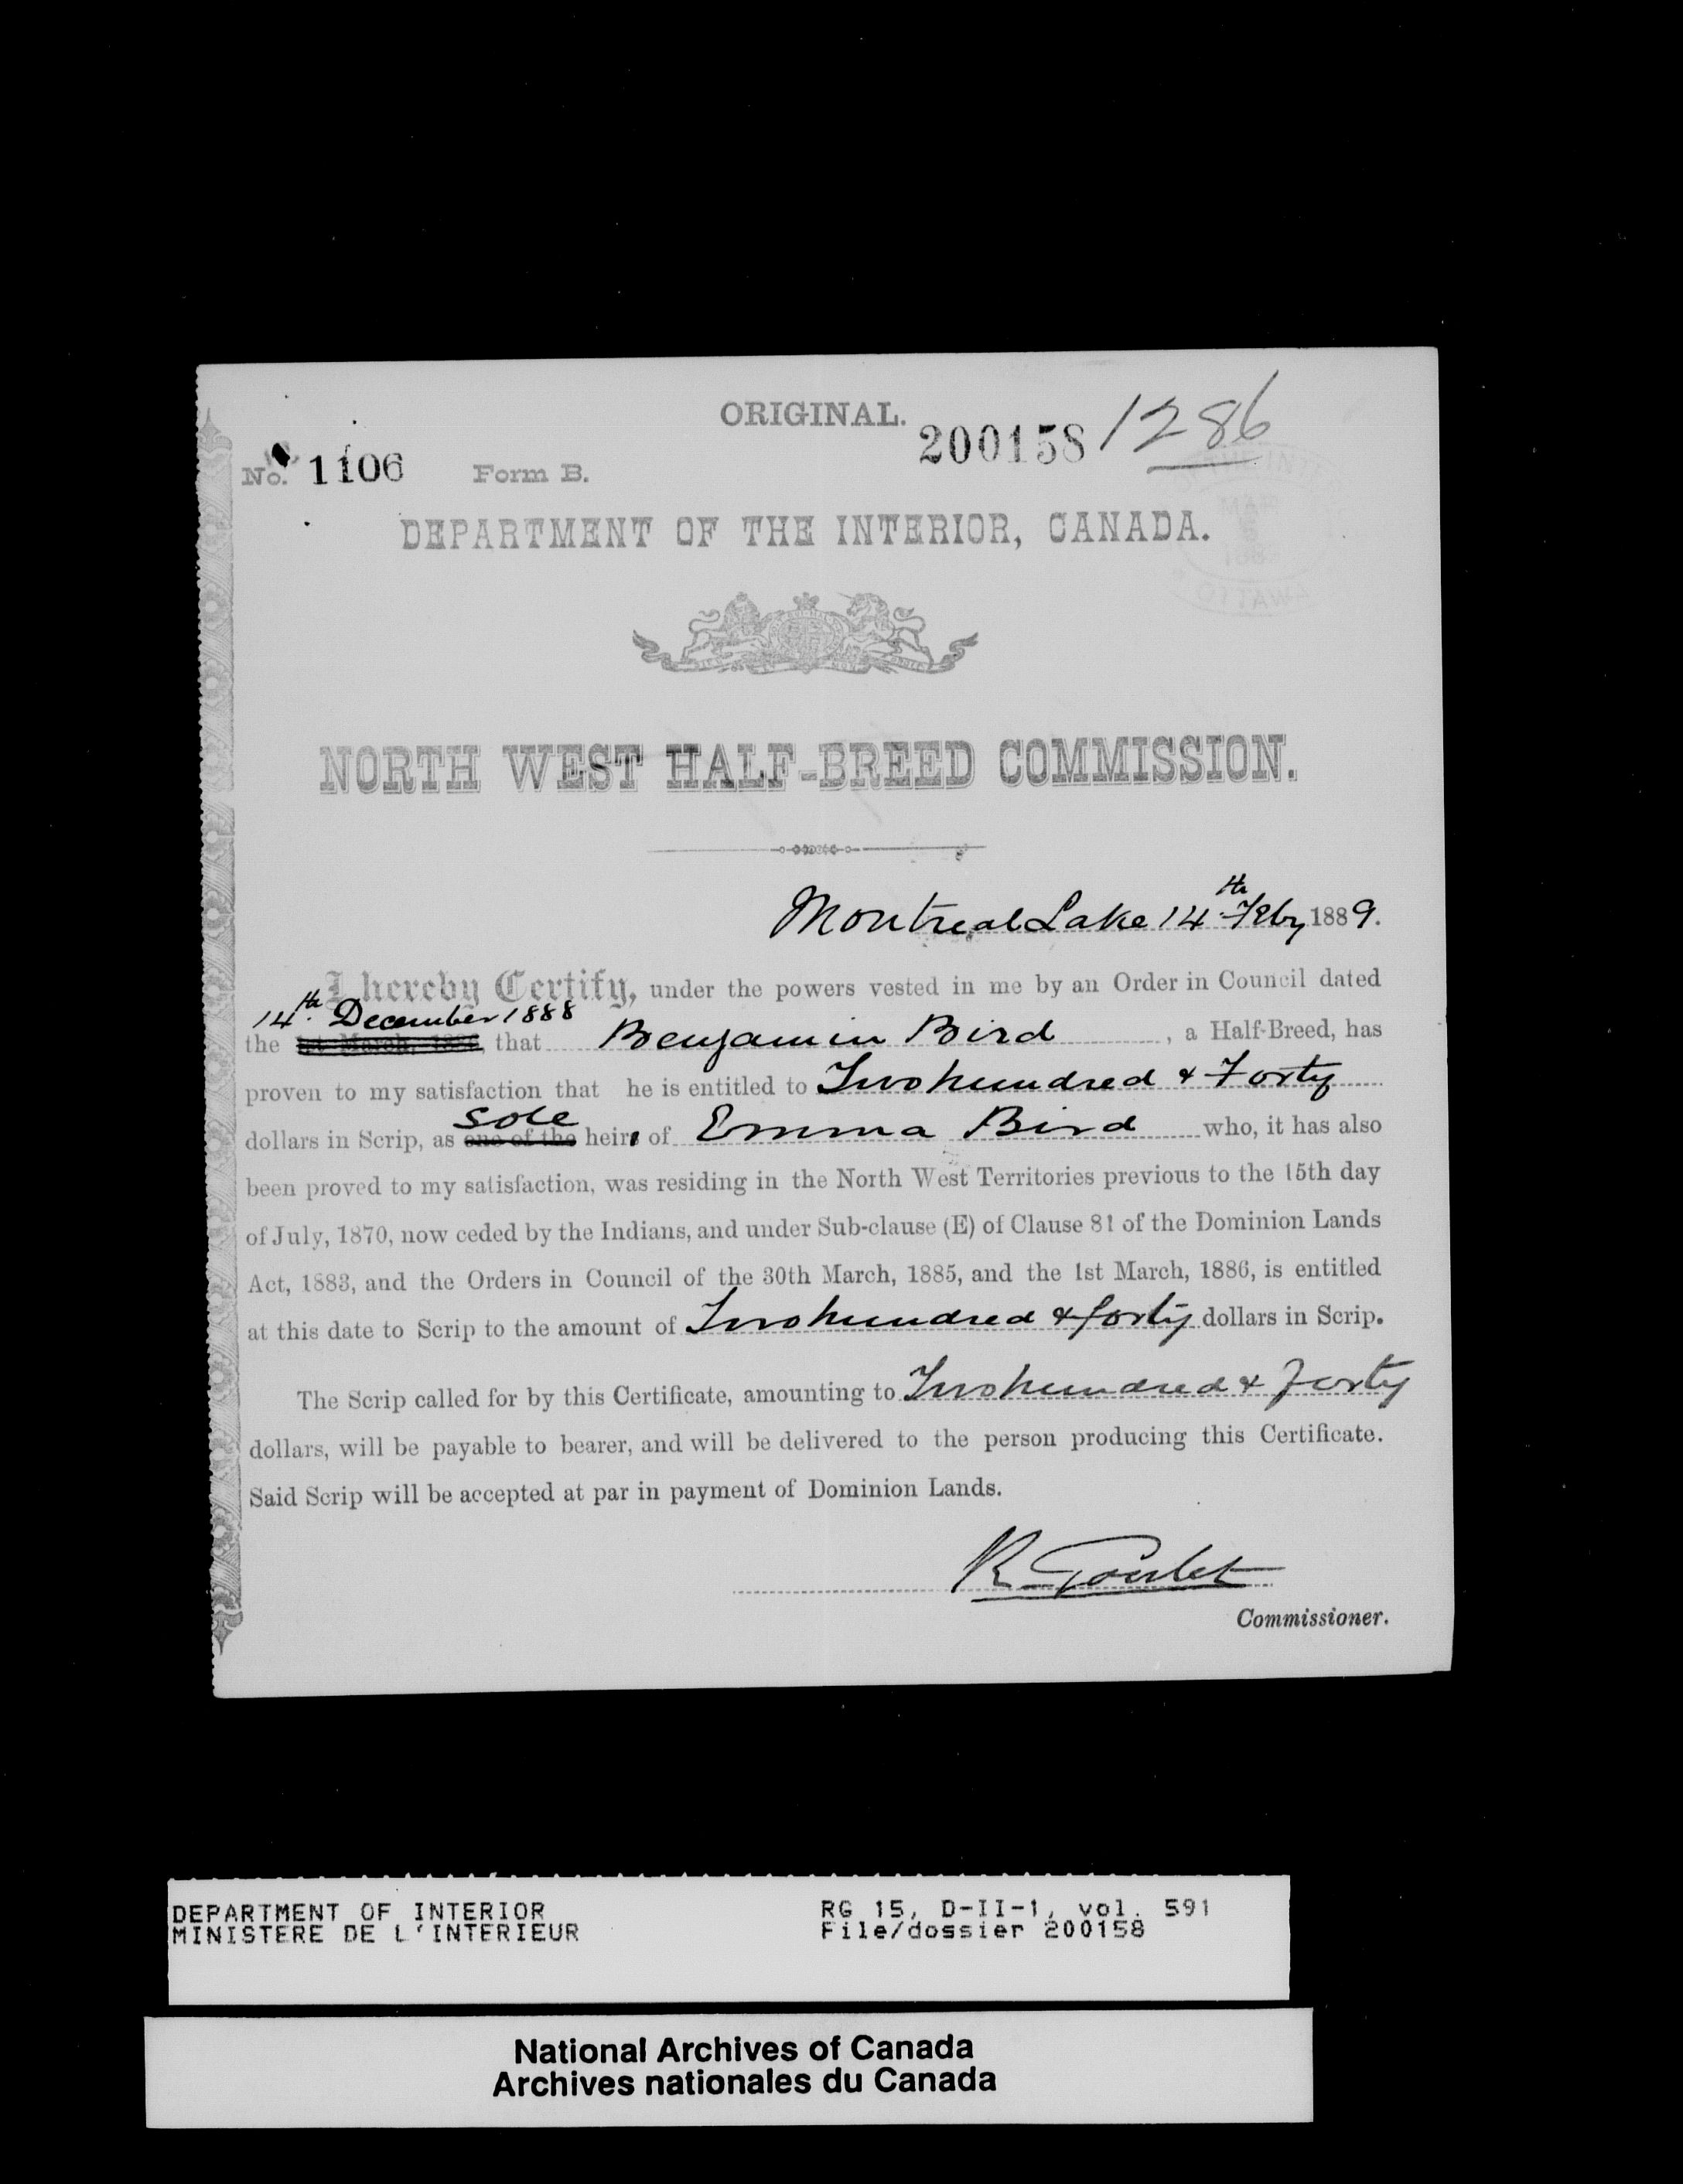 ORIGINAL.
200158 1286
No. 1106 Form B.
DEPARTMENT OF THE INTERIOR, CANADA.
MAR
OTTAWA
NORTH WEST HALF-BREED COMMISSION.
Montreal Lake 14th Feby 1889.
I hereby Certify, under the powers vested in me by an Order in Council dated
14th December 1888
the 1st March, 1886, that Benjamin Bird, a Half-Breed, has
proven to my satisfaction that he is entitled to Two hundred & Forty
sole
dollars in Scrip, as one of the heirs of Emma Bird who, it has also
been proved to my satisfaction, was residing in the North West Territories previous to the 15th day
of July, 1870, now ceded by the Indians, and under Sub-clause (E) of Clause 81 of the Dominion Lands
Act, 1883, and the Orders in Council of the 30th March, 1885, and the 1st March, 1886, is entitled
at this date to Scrip to the amount of Two hundred & forty dollars in Scrip.
The Scrip called for by this Certificate, amounting to Two hundred & Forty
dollars, will be payable to bearer, and will be delivered to the person producing this Certificate.
Said Scrip will be accepted at par in payment of Dominion Lands.
R Goulet
Commissioner.
DEPARTMENT OF INTERIOR RG 15, D-II-1, vol. 591
MINISTERE DE L'INTERIEUR File/dossier 200158
National Archives of Canada
Archives nationales du Canada